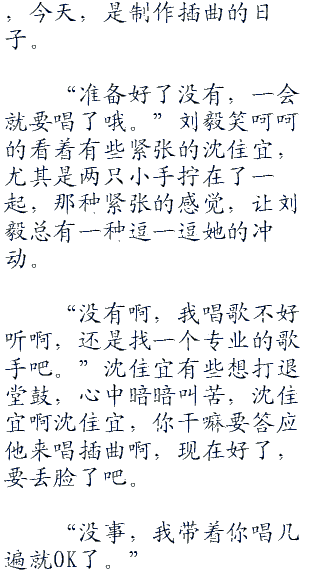 ，今天，是制作插曲的日
子。
“准备好了没有，一会
就要唱了哦。”刘毅笑呵呵
的看着有些紧张的沈佳宜，
尤其是两只小手拧在了一
起，那种紧张的感觉，让刘
毅总有一种逗一逗她的冲
动。
“没有啊，我唱歌不好
听啊，还是找一个专业的歌
手吧。”沈佳宜有些想打退
堂鼓，心中暗暗叫苦，沈佳
宜啊沈佳宜，你干嘛要答应
他来唱插曲啊，现在好了，
要丢脸了吧。
“没事，我带着你唱几
遍就OK了。”